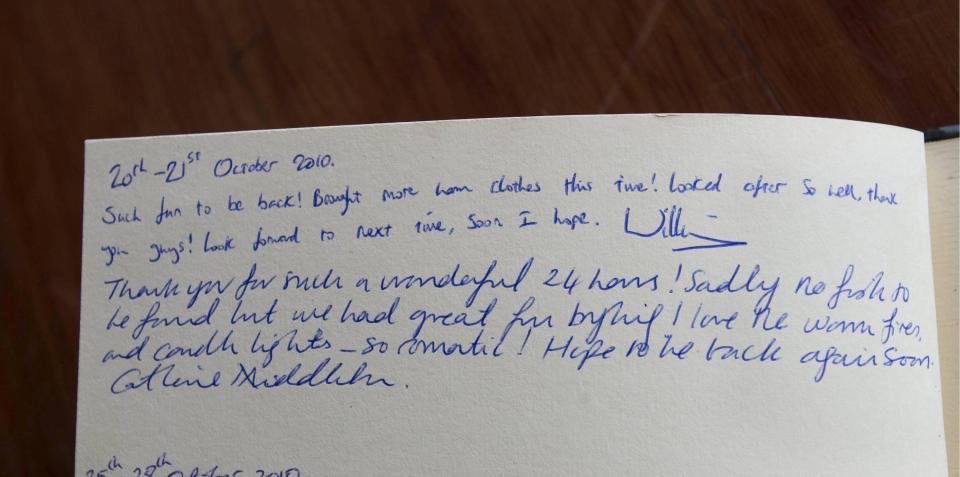 20th - 21st October 2010.
Such fun to be back! Brought more warm clothes this time! Looked after so well, thank
you guys! Look forward to next time, soon I hope. William
Thank you for such a wonderful 24 hours! Sadly no fish to
be found but we had great fun trying! I love the warm fires,
and candle lights - so romantic! Hope to be back again soon.
Catherine Middleton.
25th - 28th October 2010